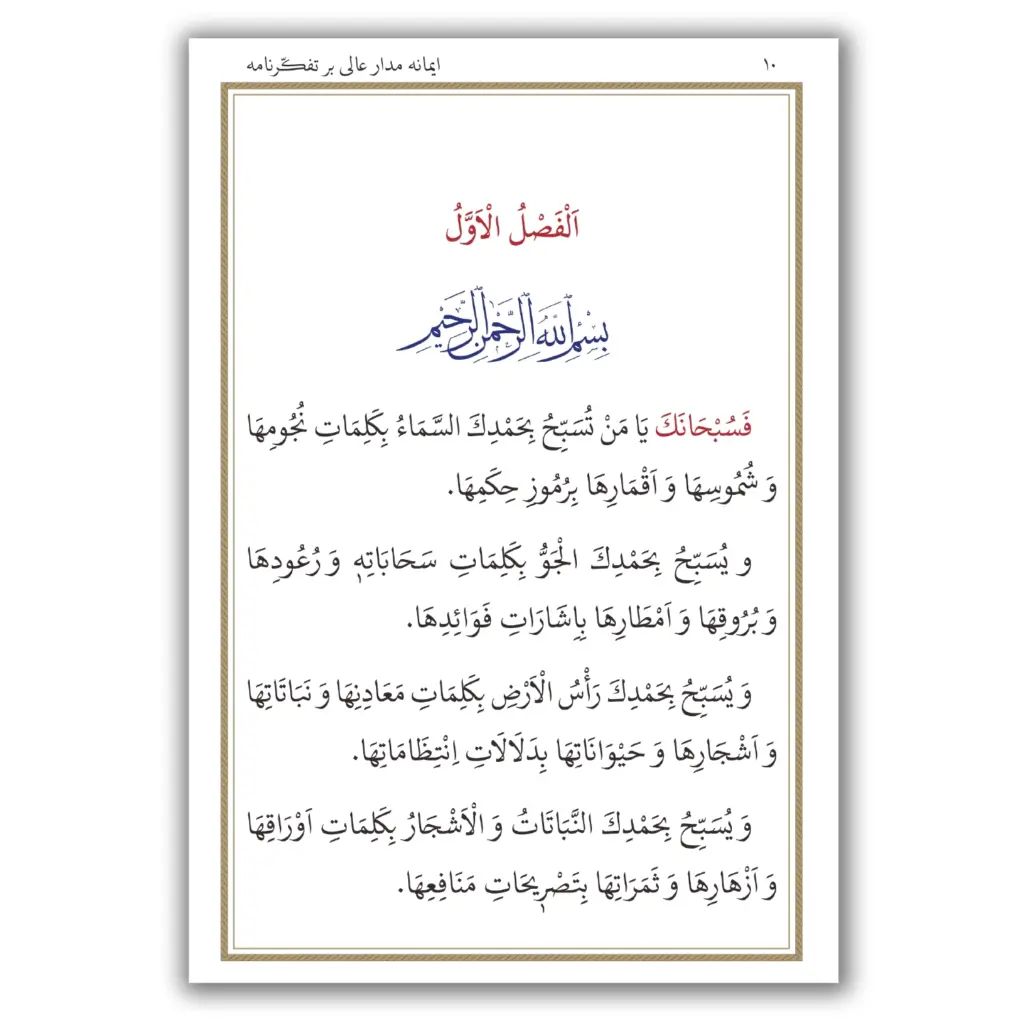 ١٠
ايمانه مدار عالى بر تفكّرنامه
اَلْفَصْلُ الْاَوَّلُ
بِسْمِ اللّٰهِ الرَّحْمٰنِ الرَّحِيْمِ
فَسُبْحَانَكَ يَا مَنْ تُسَبِّحُ بِحَمْدِكَ السَّمَاءُ بِكَلِمَاتِ نُجُومِهَا
وَ شُمُوسِهَا وَ اَقْمَارِهَا بِرُمُوزِ حِكَمِهَا.
و يُسَبِّحُ بِحَمْدِكَ الْجَوُّ بِكَلِمَاتِ سَحَابَاتِهٖ وَ رُعُودِهَا
وَ بُرُوقِهَا وَ اَمْطَارِهَا بِاِشَارَاتِ فَوَائِدِهَا.
وَ يُسَبِّحُ بِحَمْدِكَ رَأْسُ الْاَرْضِ بِكَلِمَاتِ مَعَادِنِهَا وَ نَبَاتَاتِهَا
وَ اَشْجَارِهَا وَ حَيْوَانَاتِهَا بِدَلَالَاتِ اِنْتِظَامَاتِهَا.
وَ يُسَبِّحُ بِحَمْدِكَ النَّبَاتَاتُ وَ الْاَشْجَارُ بِكَلِمَاتِ اَوْرَاقِهَا
وَ اَزْهَارِهَا وَ ثَمَرَاتِهَا بِتَصْرٖيحَاتِ مَنَافِعِهَا.